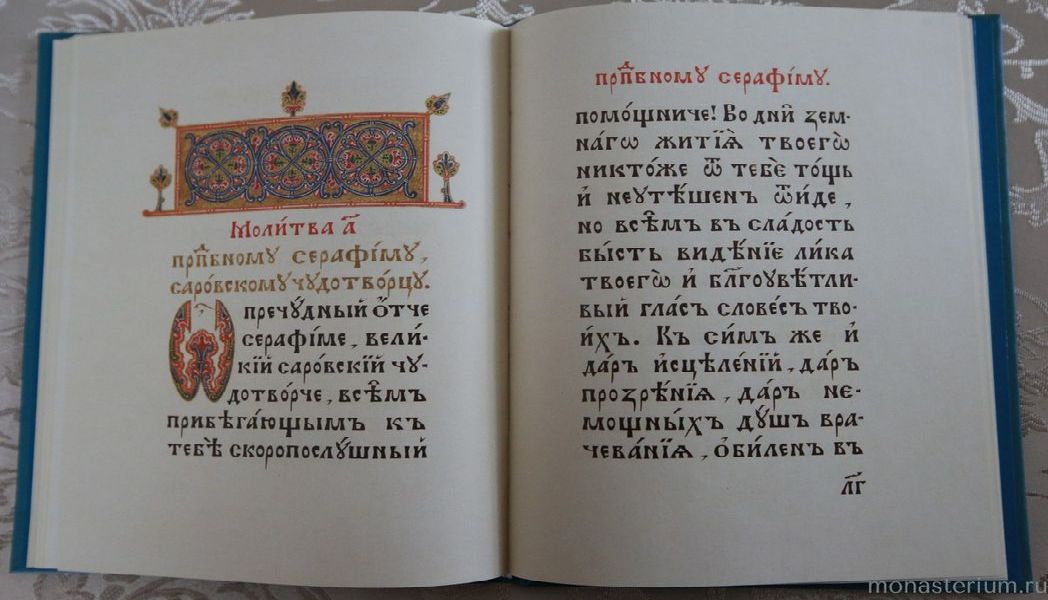 Моли́тва а҃
прпⷣбному серафі́му,
саро́вскому чудотво́рцу.
Ѡ пречу́дный ѻ́тче
серафі́ме, вели́-
кій саро́вскій чу-
дотво́рче, всѣ̑мъ
прибѣга́ющымъ къ
тебѣ̀ скоропослу́шный
прпⷣбному серафі́му.
помо́щниче! Во дни̑ зем-
на́гѡ житїѧ̀ твоегѡ̀
никто́же ѿ тебє̀ то́щь
и҆ неутѣ́шенъ ѿи́де,
но всѣ̑мъ въ сла́дость
бы́сть видѣ́нїе ли́ка
твоегѡ̀ и҆ бл҃гоувѣ́тли-
вый гла́съ слове́съ тво-
и́хъ. Къ си̑мъ же и҆
да́ръ и҆сцѣле́нїй, да́ръ
прозрѣ́нїѧ, да́ръ не-
мощны́хъ ду́шъ вра-
чева́нїѧ, ѻ҆би́ленъ въ
л҃г
monasterium.ru